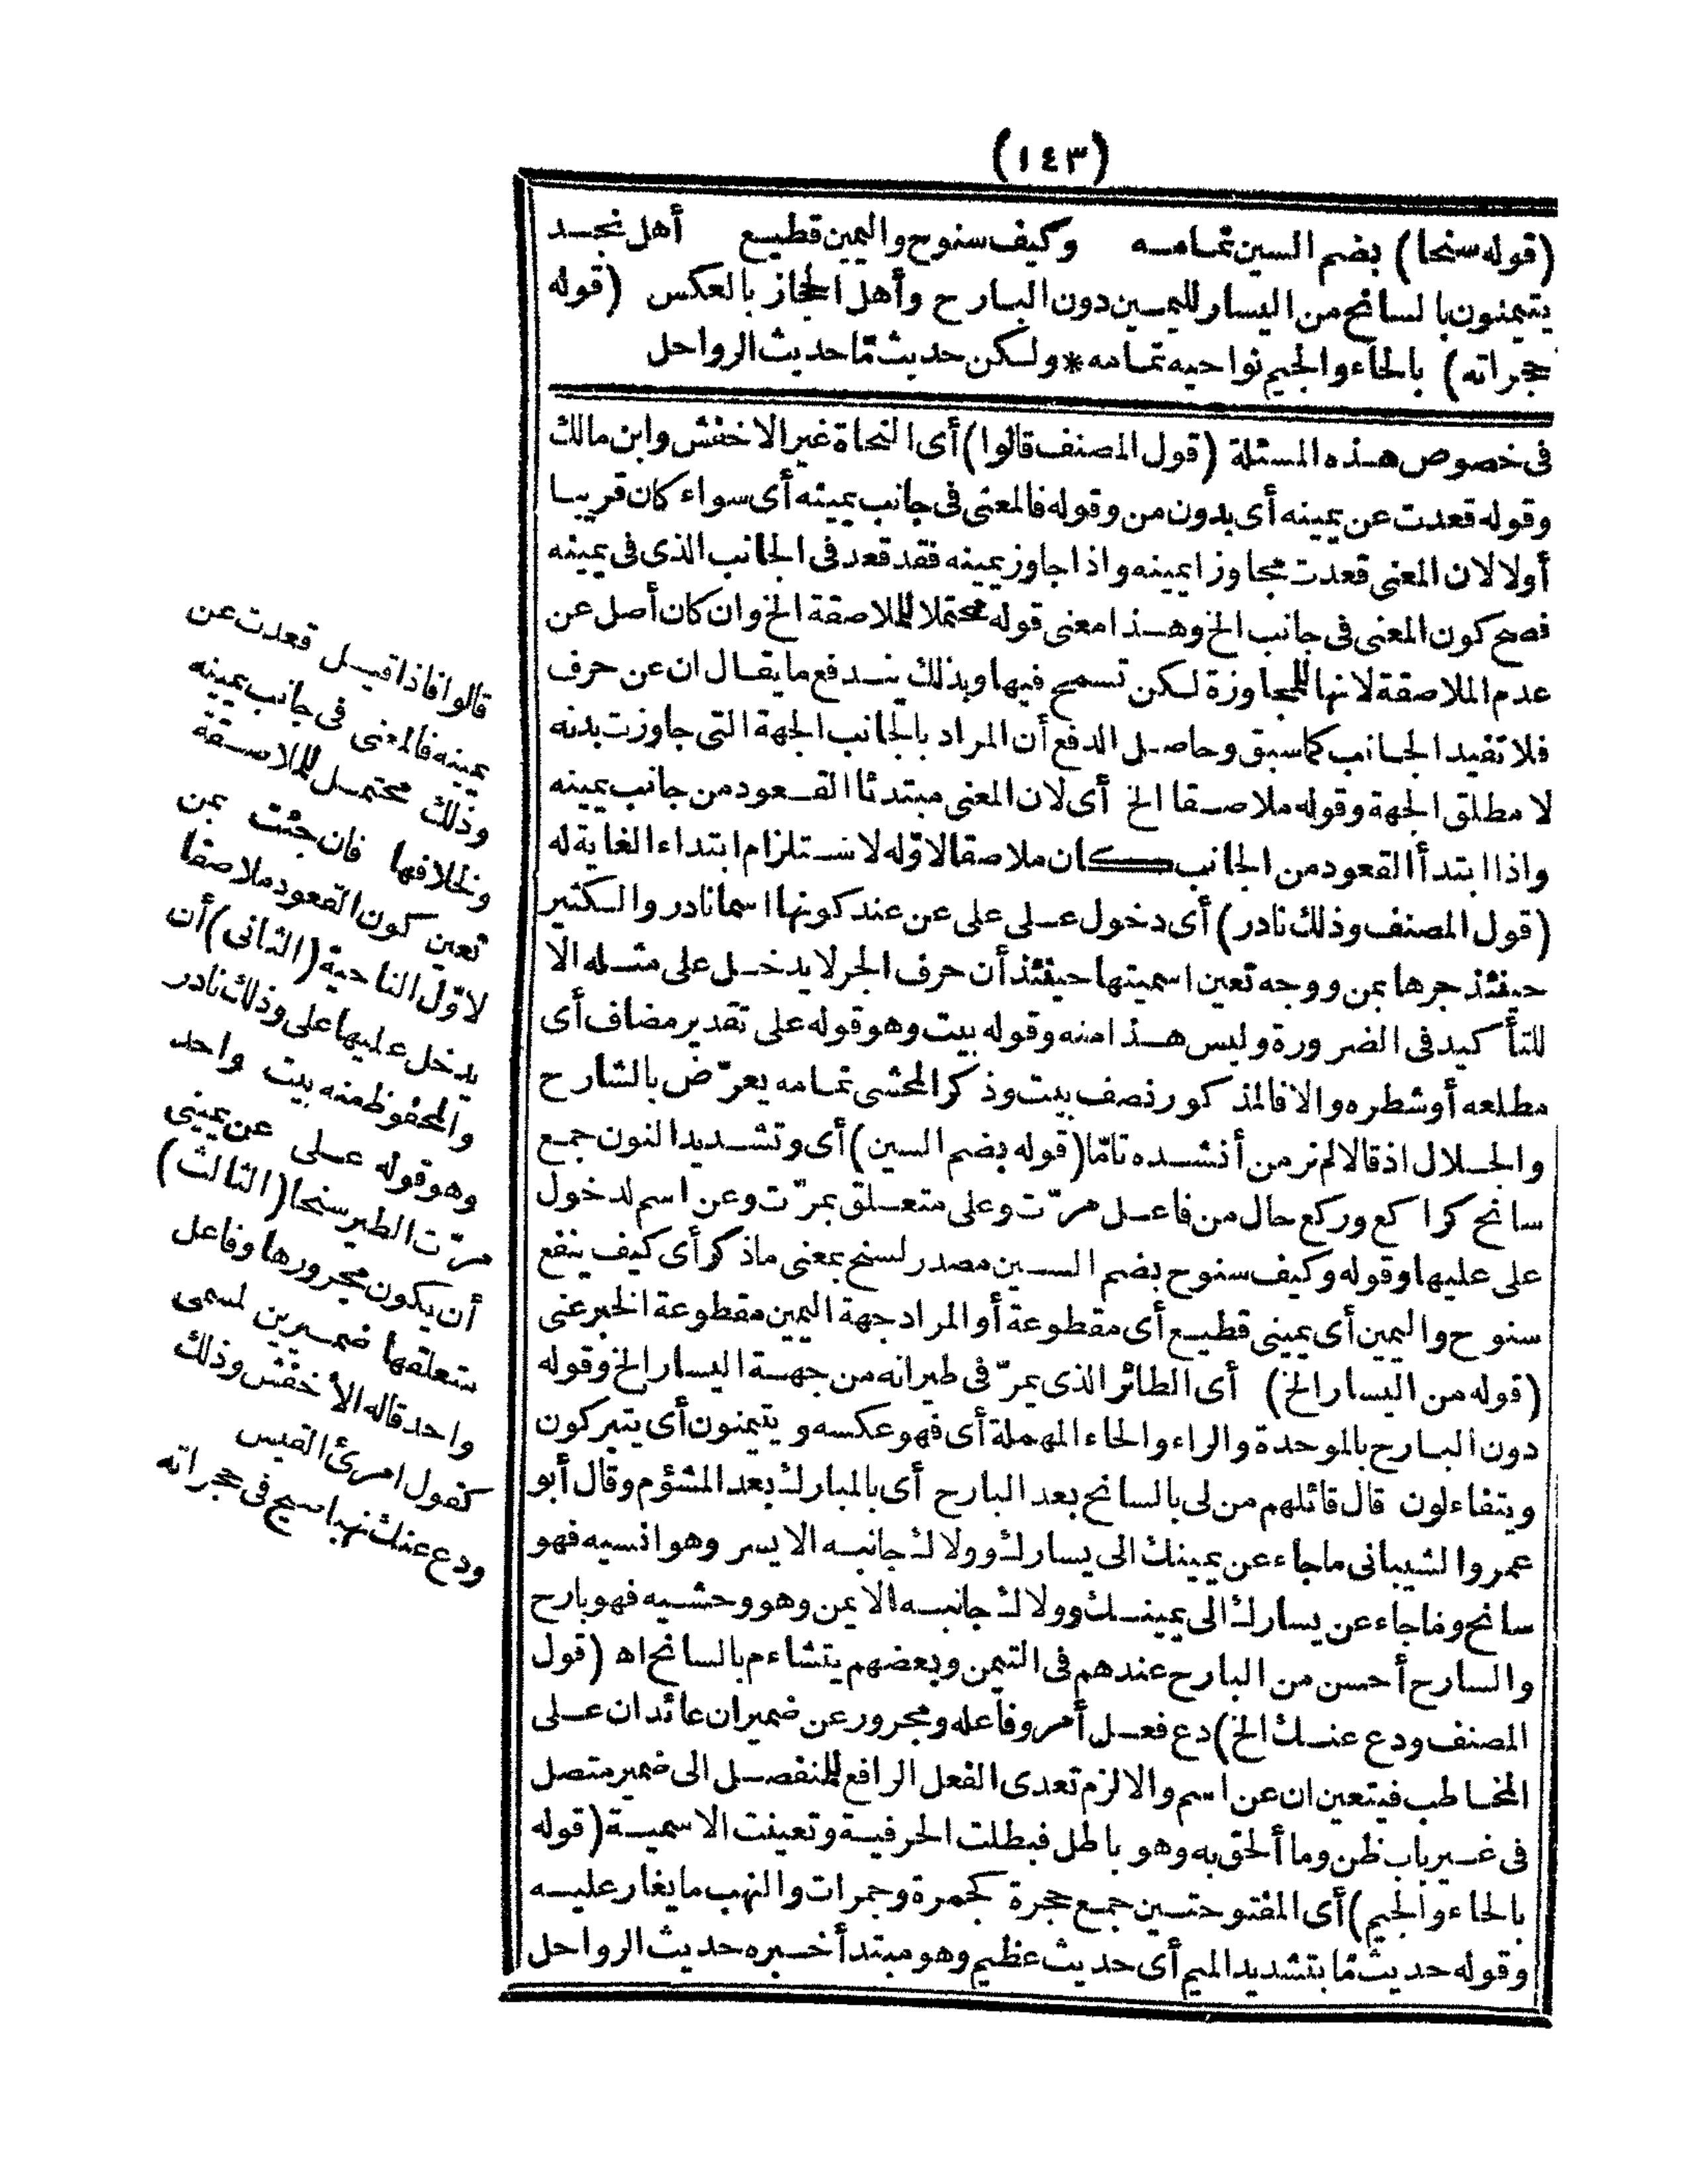 (١٤٣)
(قوله سنحا) بضم السين تمامه وكيف سنوح واليمين قطيع أهل نجد
يتيمنون بالسانح من اليسار لليمين دون البارح وأهل الحجاز بالعكس (قوله
حجراته) بالحاء والجيم نواحيه تمامه * ولكن حديث مّا حديث الرواحل
فى خصوص هذه المسئلة (قول المصنف قالوا) أى النحاة غير الاخفش وابن مالك
وقوله قعدت عن يمينه أى بدون من وقوله فالمعنى فى جانب يمينه أى سواء كان قريبا
أولا لان المعنى قعدت مجاوزا يمينه واذا جاوز يمينه فقد قعد فى الجانب الذى فى يمينه
فصح كون المعنى فى جانب الخ وهذا معنى قوله محتملا للملاصقة الخ وان كان أصل عن
عدم الملاصقة لانها للمجاوزة لكن تسمح فيها وبذلك يندفع ما يقال ان عن حرف
فلا تفيد الجانب كما سبق وحاصل الدفع أن المراد بالجانب الجهة التى جاوزت بدنه
لا مطلق الجهة وقوله ملاصقا الخ أى لان المعنى مبتدئا القعود من جانب يمينه
واذا ابتدأ القعود من الجانب كان ملاصقا لاوّله لاستلزام ابتداء الغاية له
(قول المصنف وذلك نادر) أى دخول على على عن عند كونها اسما نادر والكثير
حينئذ جرها بمن ووجه تعين اسميتها حينئذ أن حرف الجر لا يدخل على مثله الا
للتأكيد فى الضرورة وليس هذا منه وقوله بيت وهو قوله على تقدير مضاف أى
مطلعه أو شطره والا فالمذكور نصف بيت وذكر المحشى تمامه يعرّض بالشارح
والجلال اذ قالا لم نر من أنشده تامّا (قوله بضم السين) أى وتشديد النون جمع
سانح كراكع وركع حال من فاعل مرّت وعلى متعلق بمرّت وعن اسم لدخول
على عليها وقوله وكيف سنوح بضم السين مصدر لسنح بمعنى ما ذكر أى كيف ينفع
سنوح واليمين أى يمينى قطيع أى مقطوعة أو المراد جهة اليمين مقطوعة الخبر عنى
(قوله من اليسار الخ) أى الطائر الذى يمرّ فى طيرانه من جهة اليسار الخ وقوله
دون البارح بالموحدة والراء والحاء المهملة أى فهو عكسه ويتيمنون أى يتبركون
ويتفاءلون قال قائلهم من لى بالسانح بعد البارح أى بالمبارك بعد المشؤم وقال أبو
عمرو الشيبانى ما جاء عن يمينك الى يسارك وولاك جانبه الايسر وهو انسيه فهو
سانح وما جاء عن يسارك الى يمينك وولاك جانبه الايمن وهو وحشيه فهو بارح
والسارح أحسن من البارح عندهم فى التيمن وبعضهم يتشاءم بالسانح اه (قول
المصنف ودع عنك الخ) دع فعل أمر وفاعله ومجرور عن ضميران عائدان على
المخاطب فيتعين ان عن اسم والا لزم تعدى الفعل الرافع للمنفصل الى ضمير متصل
فى غير باب ظن وما ألحق به وهو باطل فبطلت الحرفية وتعينت الاسمية (قوله
بالحاء والجيم) أى المفتوحتين جمع حجرة كجمرة وجمرات والنهب ما يغار عليه
وقوله حديث مّا بتشديد الميم أى حديث عظيم وهو مبتدأ خبره حديث الرواحل
قالوا فاذا قيل قعدت عن
يمينه فالمعنى فى جانب يمينه
وذلك محتمل للملاصقة
ولخلافها فان جئت بمن
تعين كون القعود ملاصقا
لاوّل الناحية (الثانى) أن
يدخل عليها على وذلك نادر
والمحفوظ منه بيت واحد
وهو قوله على عن يمينى
مرّت الطير سنحا (الثالث)
أن يكون مجرورها وفاعل
متعلقها ضميرين لمسمى
واحد قاله الأخفش وذلك
كقول امرئ القيس
ودع عنك نهبا صيح فى حجراته